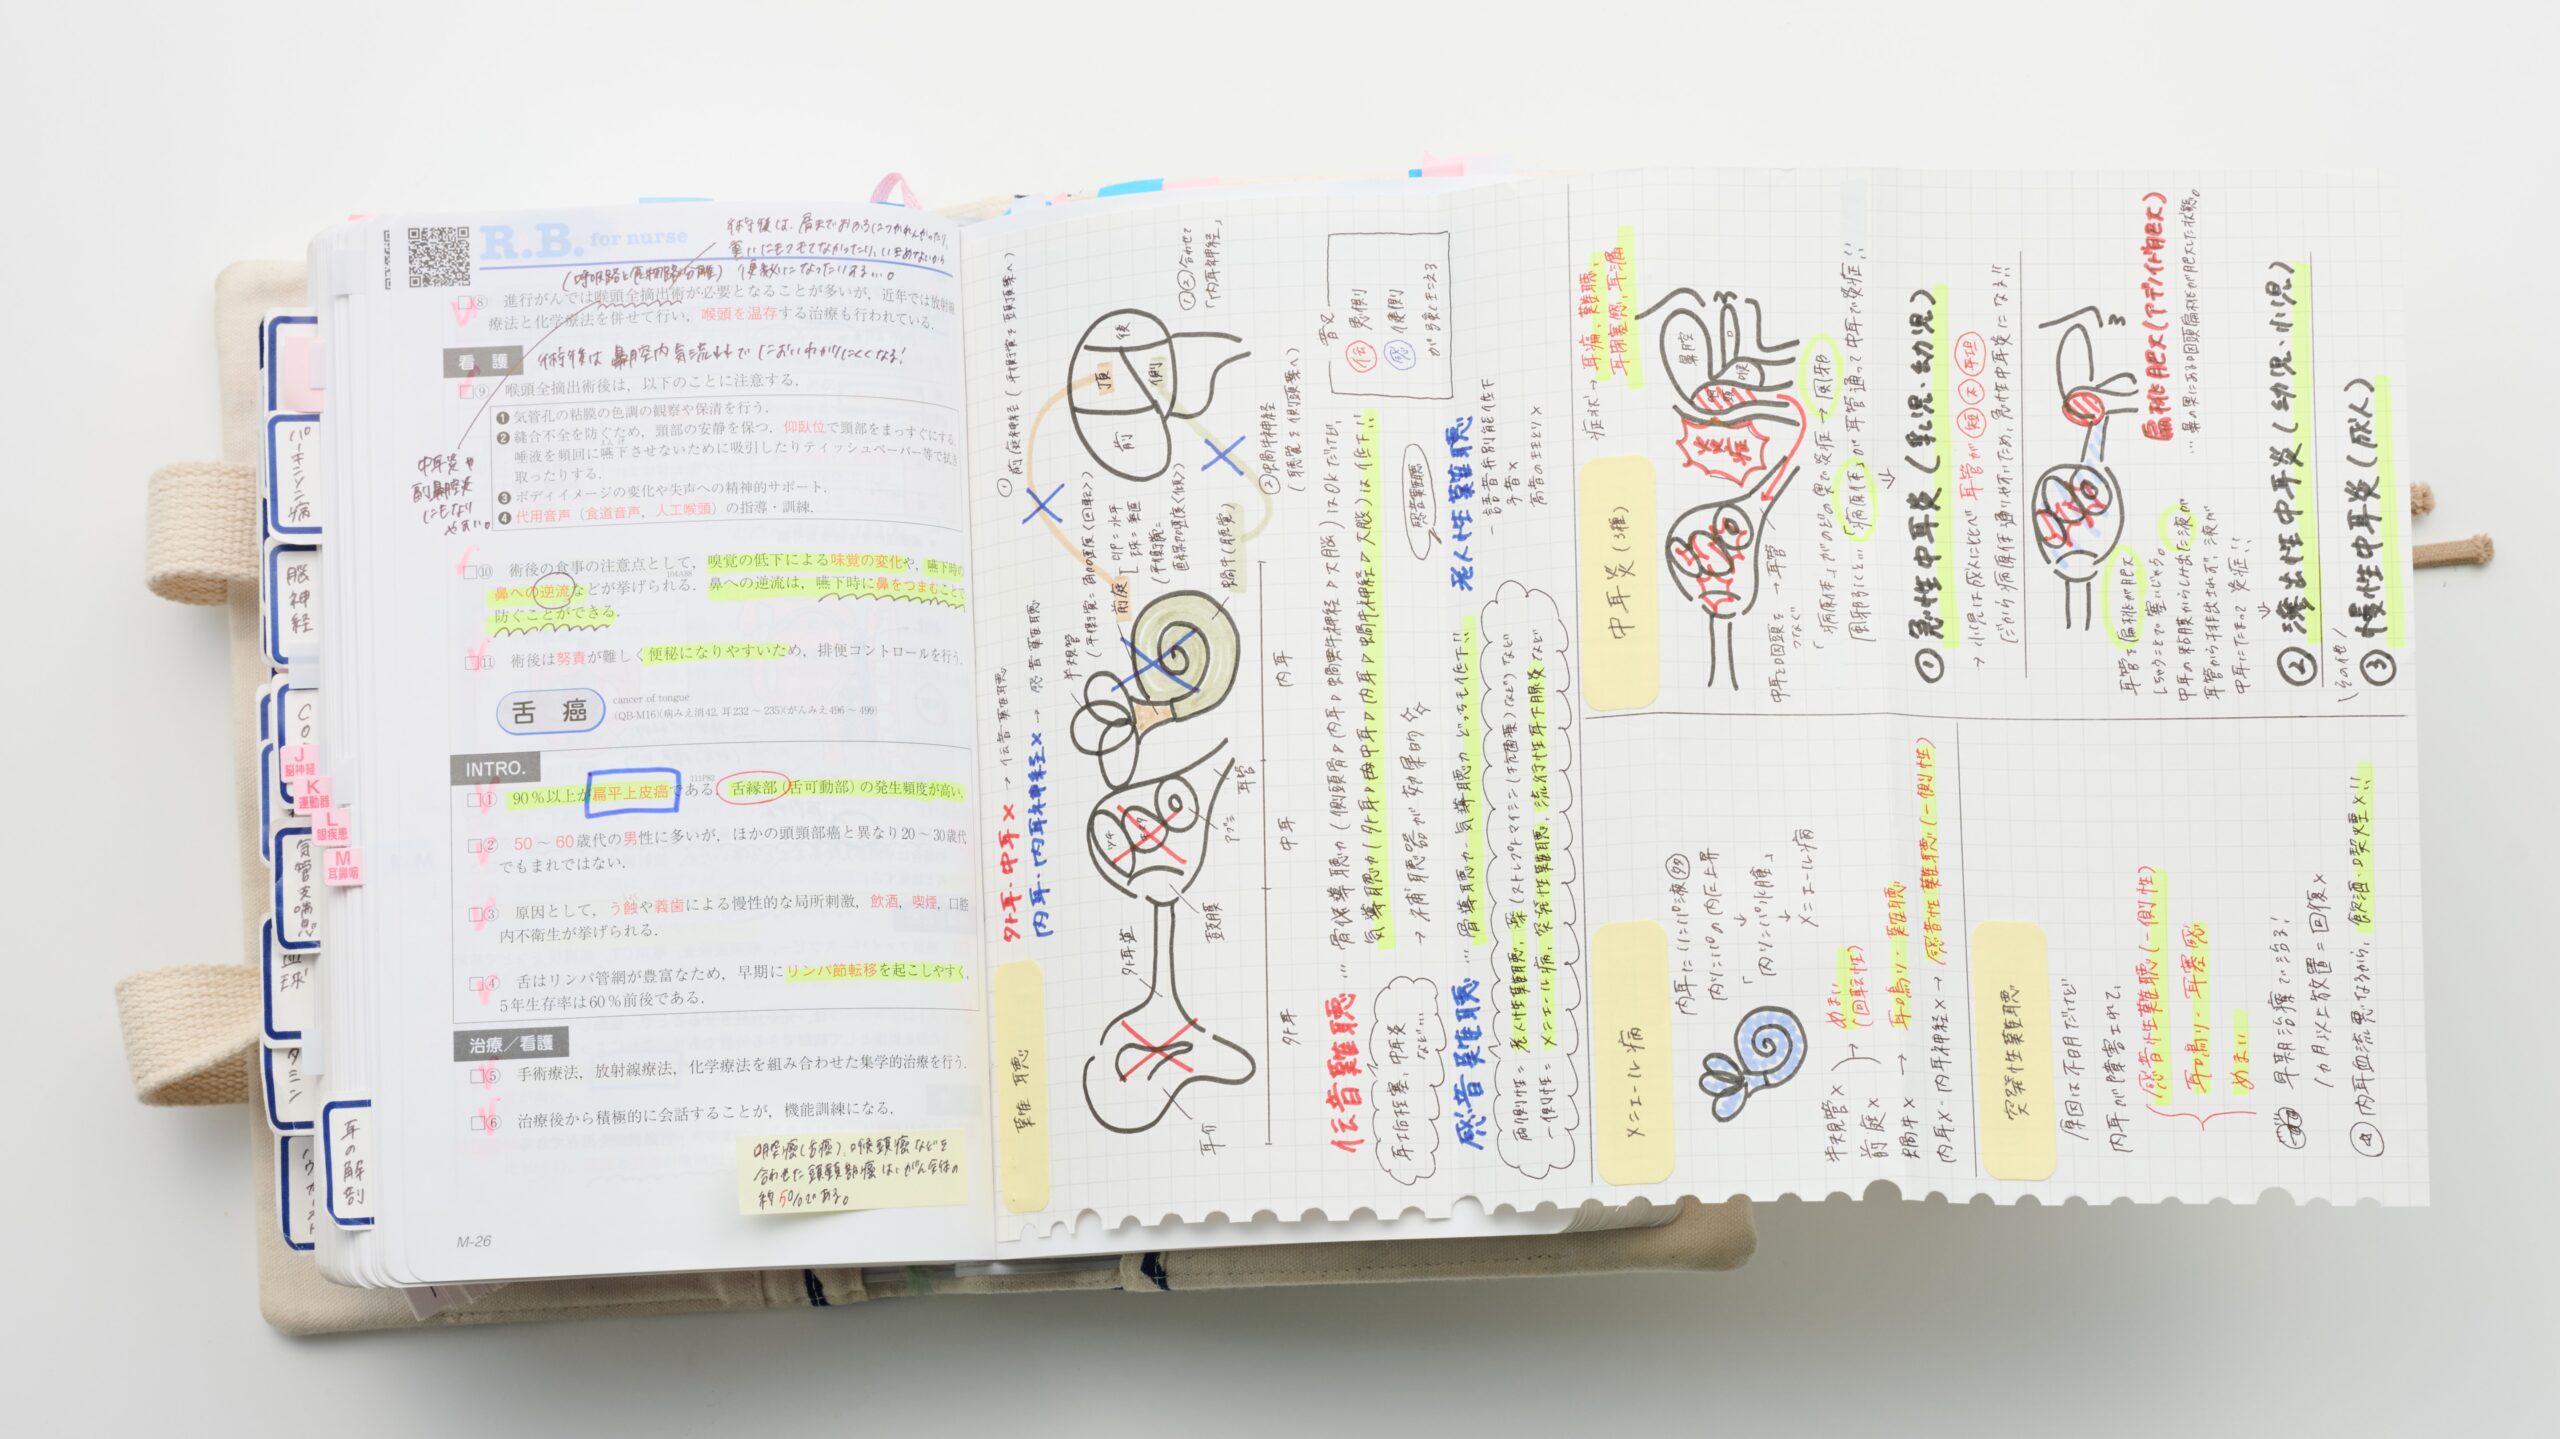 R.B. for nurse
術後は、肩までおふろにつかれんかったり、
重いにもつもてなかったり、いきめないから
便秘になったりする…。
(呼吸路と食物路分離)
□⑧ 進行がんでは喉頭全摘出術が必要となることが多いが，近年では放射線
療法と化学療法を併せて行い，喉頭を温存する治療も行われている．
看 護
術後は鼻腔内気流↓↓でにおいわかりにくくなる！
□⑨ 喉頭全摘出術後は，以下のことに注意する．
❶ 気管孔の粘膜の色調の観察や保清を行う．
❷ 縫合不全を防ぐため，頸部の安静を保つ．仰臥位で頸部をまっすぐにする．
唾液を頻回に嚥下させないために吸引したりティッシュペーパー等で拭き
取ったりする．
❸ ボディイメージの変化や失声への精神的サポート．
❹ 代用音声（食道音声，人工喉頭）の指導・訓練．
中耳炎や
副鼻腔炎
にもなり
やすい。
□⑩ 術後の食事の注意点として，嗅覚の低下による味覚の変化や，嚥下時の
鼻への逆流などが挙げられる．鼻への逆流は，嚥下時に鼻をつまむことで
104A88
防ぐことができる．
□⑪ 術後は努責が難しく便秘になりやすいため，排便コントロールを行う．
舌 癌
cancer of tongue
(QB-M16)(病みえ消42, 耳232～235)(がんみえ496～499)
INTRO.
□① 90％以上が扁平上皮癌である．舌縁部（舌可動部）の発生頻度が高い．
111P82
□② 50～60歳代の男性に多いが，ほかの頭頸部癌と異なり20～30歳代
でもまれではない．
□③ 原因として，う蝕や義歯による慢性的な局所刺激，飲酒，喫煙，口腔
内不衛生が挙げられる．
□④ 舌はリンパ管網が豊富なため，早期にリンパ節転移を起こしやすく，
5年生存率は60％前後である．
治療／看護
□⑤ 手術療法，放射線療法，化学療法を組み合わせた集学的治療を行う．
□⑥ 治療後から積極的に会話することが，機能訓練になる．
口腔癌(舌癌)、喉頭癌などを
合わせた頭頸部癌は、がん全体の
約5%である。
M-26
パーキンソン病
脳神経
気管支喘息
J
脳神経
K
運動器
L
眼疾患
M
耳鼻咽
耳の解剖
難聴
外耳・中耳× → 伝音難聴
内耳・内耳神経× → 感音難聴
耳介
外耳道
鼓膜
ツチ
キヌタ
アブミ
耳管
半規管
(平衡覚=角加速度<回転>)
前庭
(平衡覚=
直線加速度<傾>)
蝸牛(聴覚)
外耳
中耳
内耳
①前庭神経(平衡覚を頭頂葉へ)
②蝸牛神経
(聴覚を側頭葉へ)
①②合わせて
「内耳神経」
前
頂
側
後
音叉
伝 患側
感 健側
が強くきこえる
伝音難聴 … 骨伝導聴力(側頭骨▷内耳▷蝸牛神経▷大脳)はOKだけど、
気導聴力(外耳▷中耳▷内耳▷蝸牛神経▷大脳)は低下!!
→ 補聴器が効果的☆
耳垢栓塞、中耳炎
など…
感音難聴 … 骨導聴力・気導聴力 どっちも低下!!
感音難聴
老人性難聴
語音弁別能低下
子音×
高音のききとり×
両側性=老人性難聴、薬(ストレプトマイシン(抗菌薬)など)など
一側性=メニエール病、突発性難聴、流行性耳下腺炎など
中耳炎(3種)
症状→ 耳痛、難聴、
耳閉塞感、耳漏
鼻腔
炎症
耳管
中耳と咽頭を
つなぐ
「病原体」がのどの奥で炎症 → 風邪
風邪ひくと…「病原体」が耳管通って中耳で炎症!!
①急性中耳炎(乳児・幼児)
→ 小児は成人に比べ 耳管が 短 太 平坦
(だから病原体通りやすいため、急性中耳炎になる!!
扁桃肥大(アデノイド肥大)
…鼻の奥にある咽頭扁桃が肥大した状態。
耳管を扁桃が肥大
しちゃうことで塞いじゃう。
中耳の粘膜からしけ出た液が
耳管から排出されず、液が
中耳にたまって炎症!!
②滲出性中耳炎(幼児・小児)
\その他/
③慢性中耳炎(成人)
メニエール病
内耳にリンパ液 多
内リンパの内圧上昇
↓
「内リンパ水腫」
↓
メニエール病
半規管×
前庭×
→ めまい
(回転性)
蝸牛× → 耳鳴り・難聴
内耳×・内耳神経× → 感音性難聴(一側性)
突発性難聴
原因は不明だけど
内耳が障害されて、
感音性難聴(一側性)
耳鳴り・耳塞感
めまい
早期治療で治る！
1カ月以上放置=回復×
内耳血流悪くなるから、飲酒・喫煙×!!